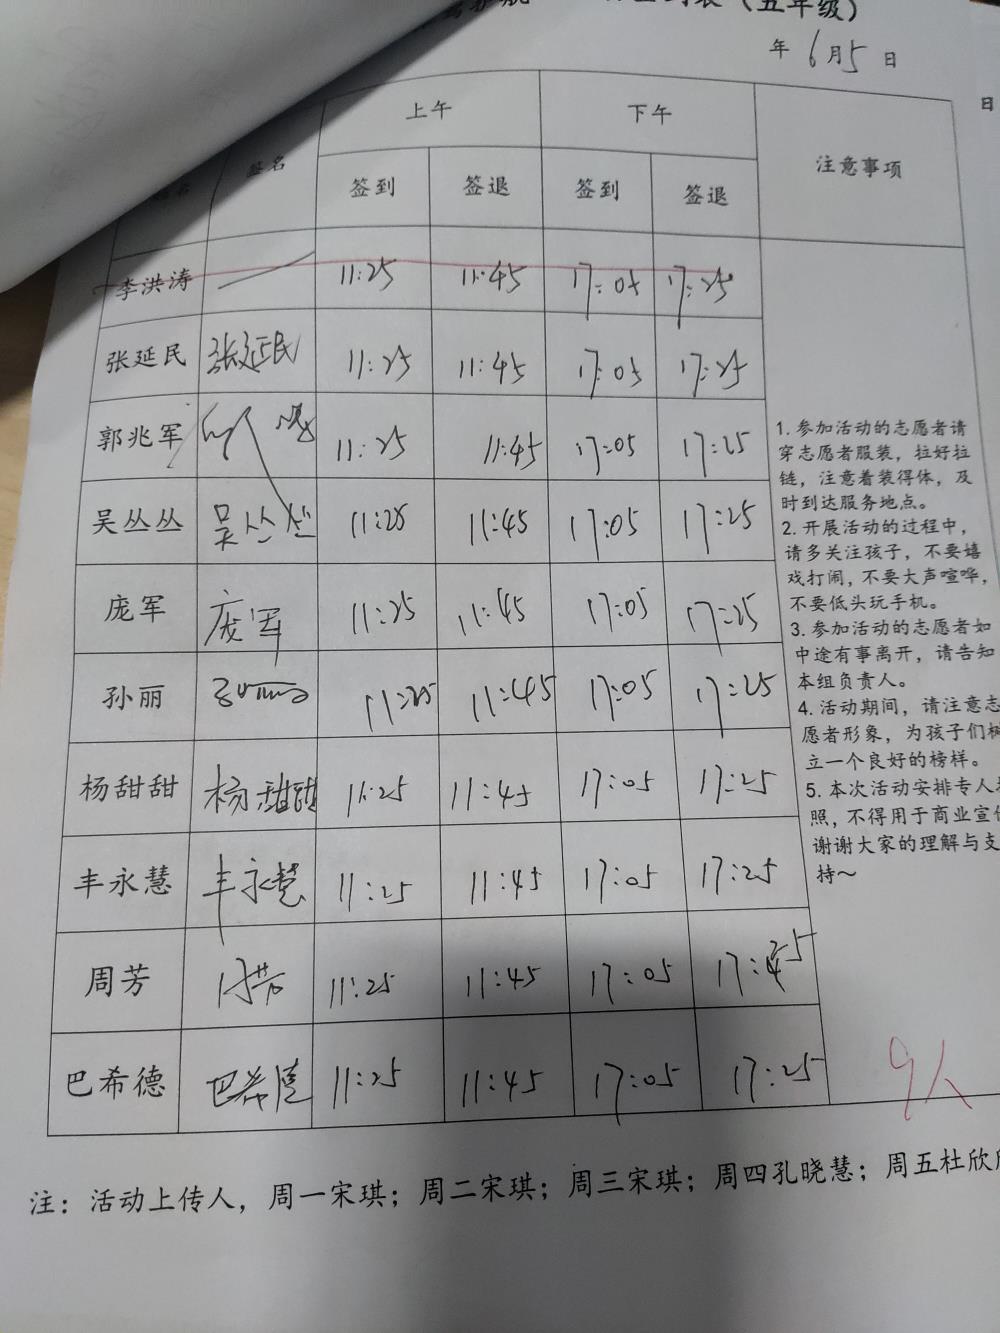 （五年级）
年 6月5日
日
上午 下午 注意事项
签名 签到 签退 签到 签退
李洪涛 11:25 11:45 17:05 17:25
张延民 张延民 11:25 11:45 17:05 17:25
郭兆军 11:25 11:45 17:05 17:25
吴丛丛 吴丛丛 11:25 11:45 17:05 17:25
庞军 庞军 11:25 11:45 17:05 17:25
孙丽 11:25 11:45 17:05 17:25
杨甜甜 杨甜甜 11:25 11:45 17:05 17:25
丰永慧 丰永慧 11:25 11:45 17:05 17:25
周芳 周芳 11:25 11:45 17:05 17:25
巴希德 巴希德 11:25 11:45 17:05 17:25
1. 参加活动的志愿者请
穿志愿者服装，拉好拉
链，注意着装得体，及
时到达服务地点。
2. 开展活动的过程中，
请多关注孩子，不要嬉
戏打闹，不要大声喧哗，
不要低头玩手机。
3. 参加活动的志愿者如
中途有事离开，请告知
本组负责人。
4. 活动期间，请注意志
愿者形象，为孩子们树
立一个良好的榜样。
5. 本次活动安排专人
照，不得用于商业宣传
谢谢大家的理解与支
持～
9人
注：活动上传人，周一宋琪；周二宋琪；周三宋琪；周四孔晓慧；周五杜欣